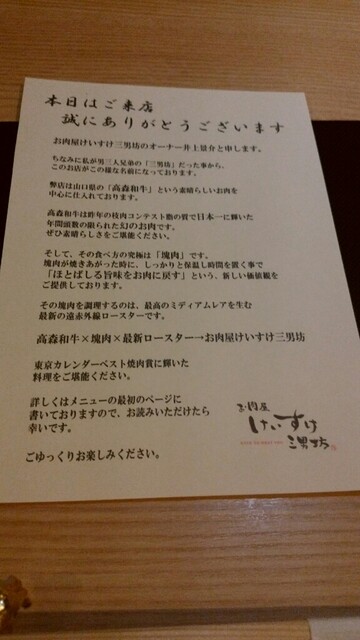 本日はご来店
誠にありがとうございます
お肉屋けいすけ三男坊のオーナー井上景介と申します。
ちなみに私が男三人兄弟の「三男坊」だった事から、
このお店がこの様な名前になっております。
弊店は山口県の「高森和牛」という素晴らしいお肉を
中心に仕入れております。
高森和牛は昨年の枝肉コンテスト脂の質で日本一に輝いた
年間頭数の限られた幻のお肉です。
ぜひ素晴らしさをご堪能ください。
そして、その食べ方の究極は「塊肉」です。
塊肉が焼きあがった時に、しっかりと保温し時間を置く事で
「ほとばしる旨味をお肉に戻す」という、新しい価値観を
ご提供しております。
その塊肉を調理するのは、最高のミディアムレアを生む
最新の遠赤外線ロースターです。
高森和牛×塊肉×最新ロースター→お肉屋けいすけ三男坊
東京カレンダーベスト焼肉賞に輝いた
料理をご堪能ください。
詳しくはメニューの最初のページに
書いておりますので、お読みいただけたら
幸いです。
ごゆっくりお楽しみください。
お肉屋
けいすけ
三男坊